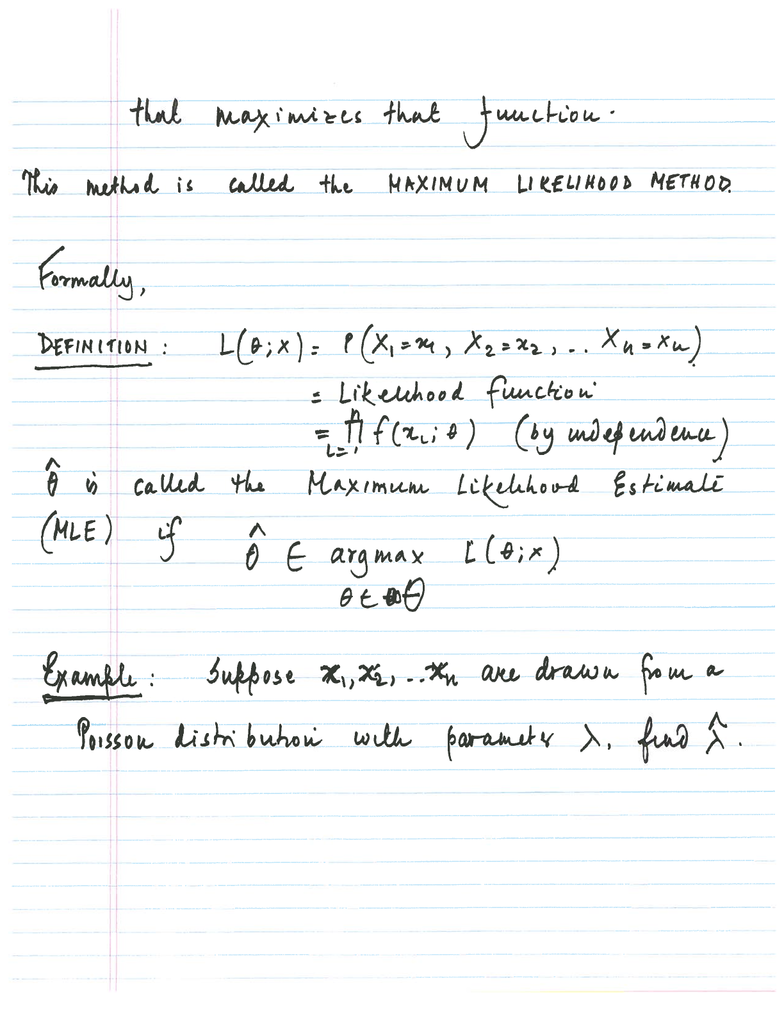 that maximizes that function.
This method is called the MAXIMUM LIKELIHOOD METHOD.
Formally,
DEFINITION : L(θ;x) = P(X₁=x₁, X₂=x₂, .. Xₙ=xₙ)
= Likelihood function
= ∏ⁿᵢ₌₁ f(xᵢ; θ) (by independence)
θ̂ is called the Maximum Likelihood Estimate
(MLE) if θ̂ ∈ argmax L(θ;x)
θ ∈ Θ
Example : Suppose x₁, x₂, ..xₙ are drawn from a
Poisson distribution with parameter λ, find λ̂.